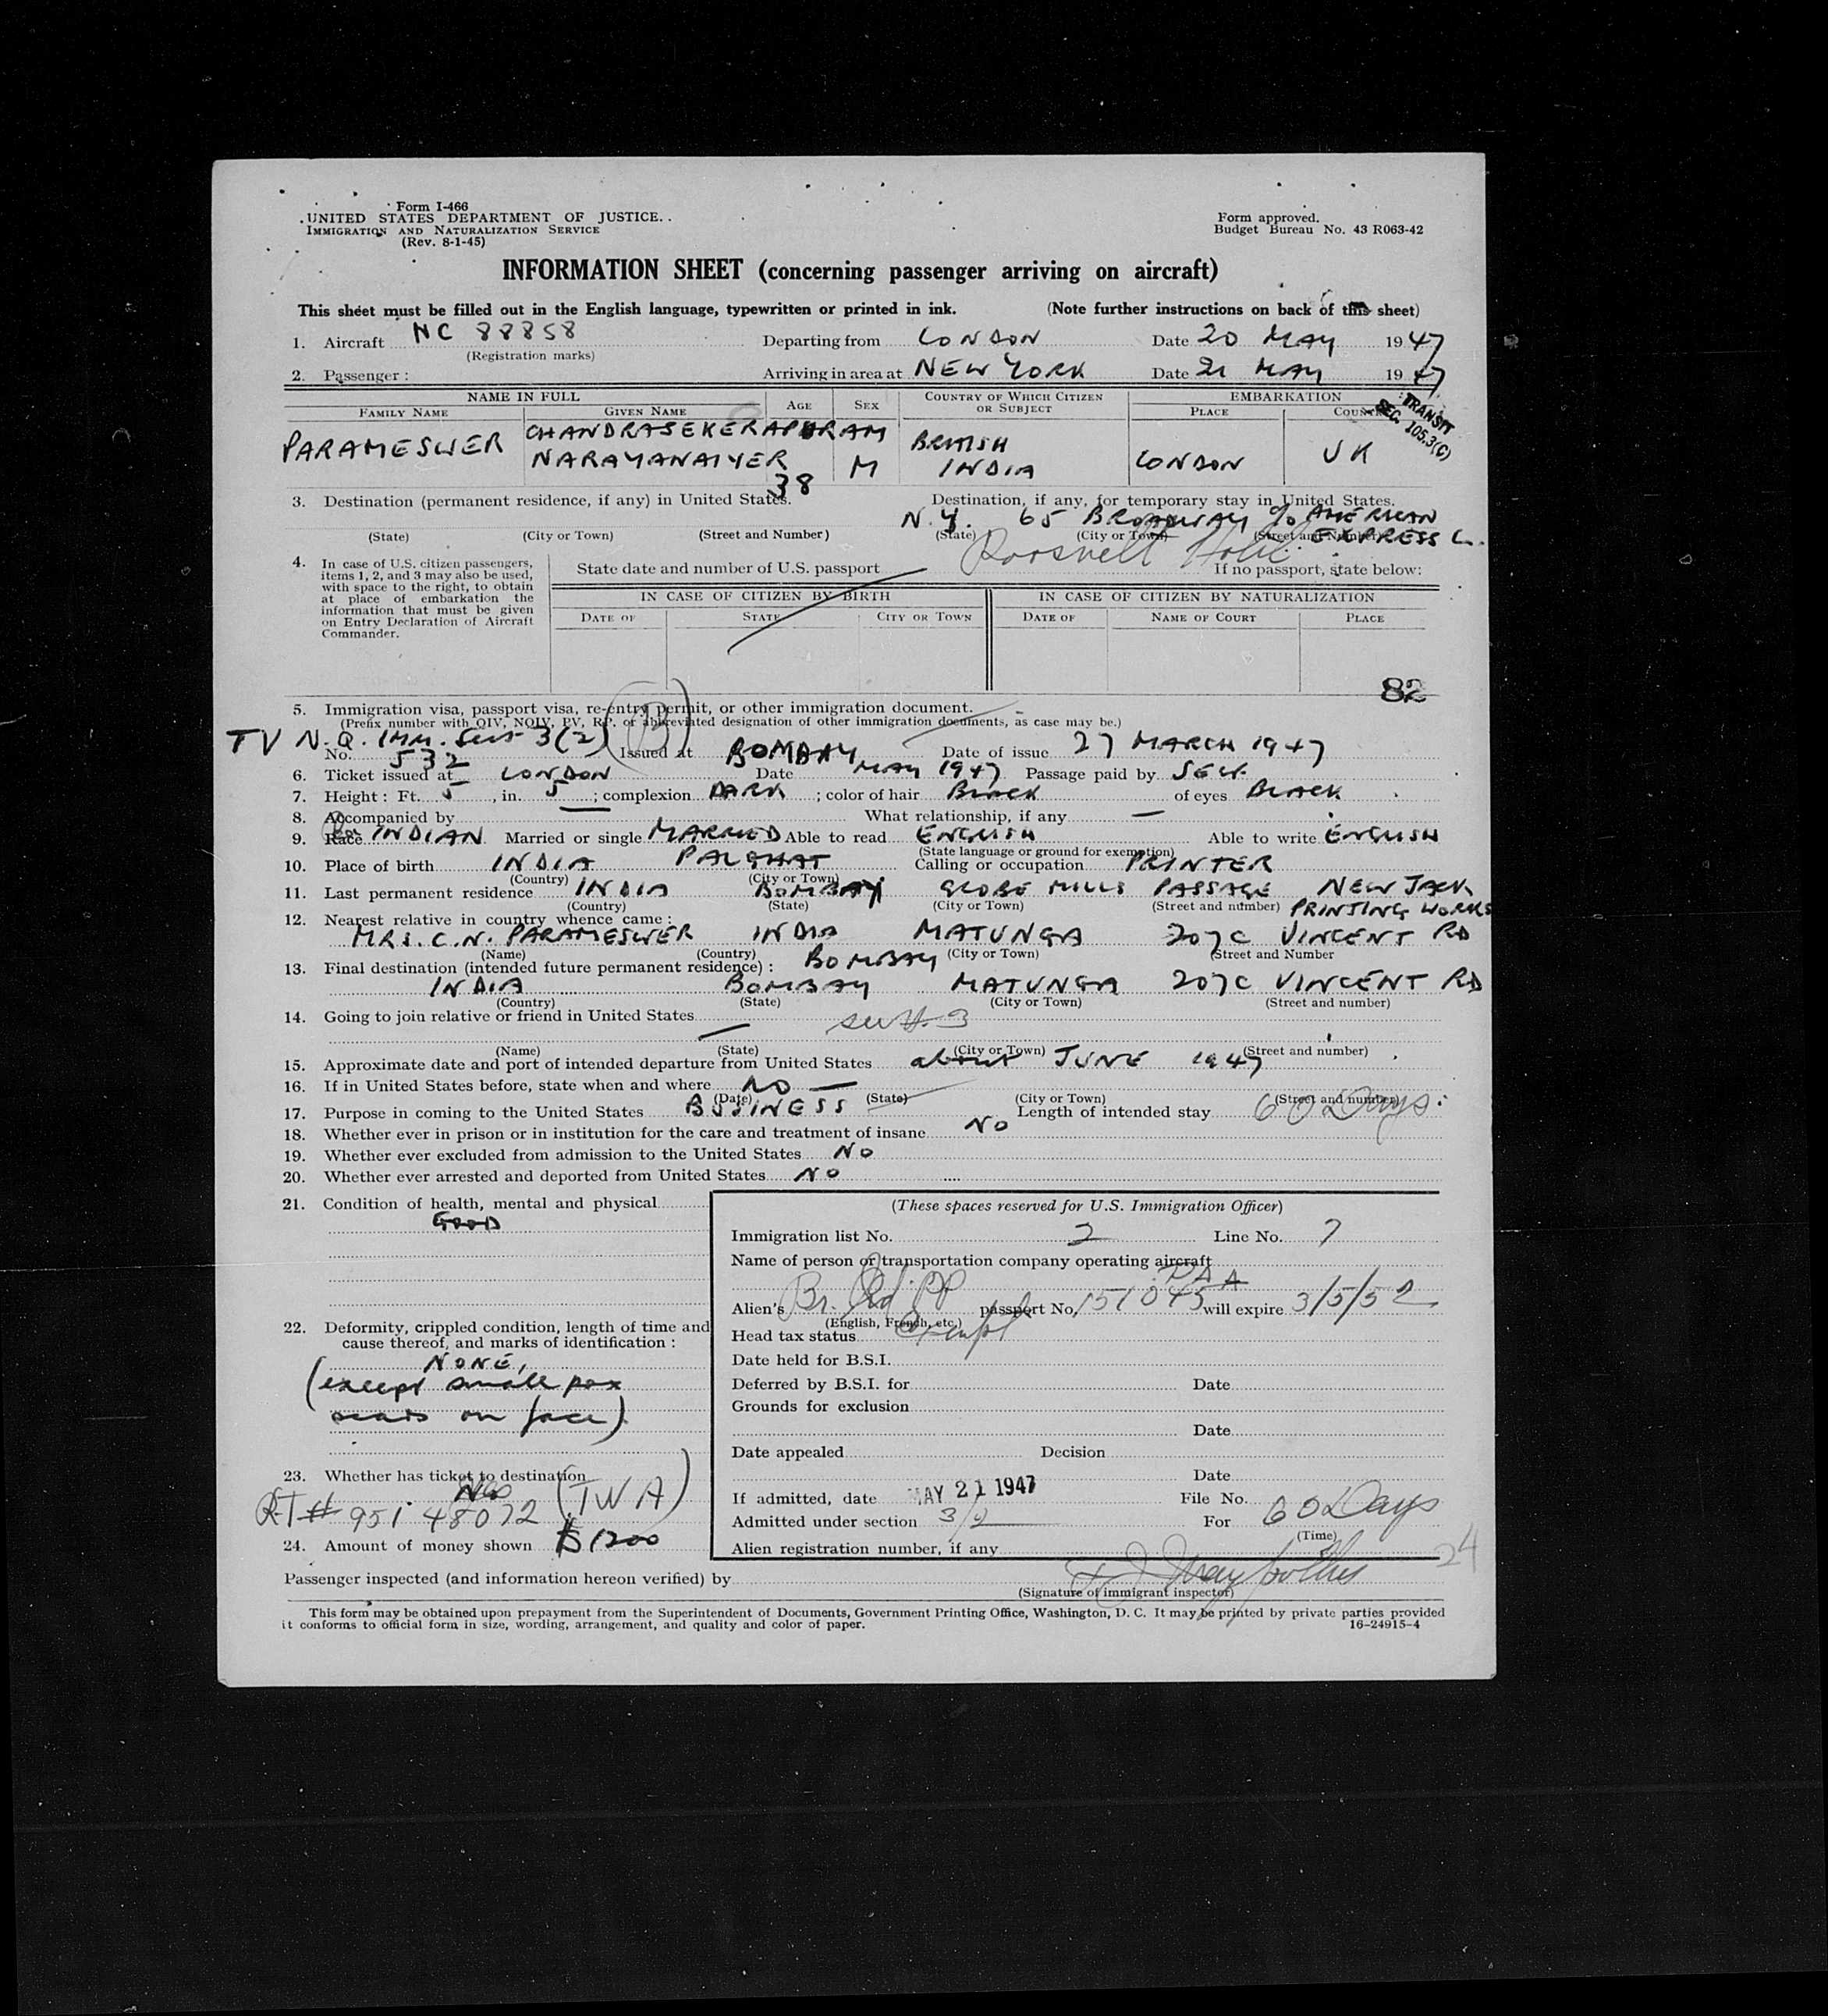 Form I-466
UNITED STATES DEPARTMENT OF JUSTICE
IMMIGRATION AND NATURALIZATION SERVICE
(Rev. 8-1-45)
Form approved.
Budget Bureau No. 43 R063-42
INFORMATION SHEET (concerning passenger arriving on aircraft)
This sheet must be filled out in the English language, typewritten or printed in ink. (Note further instructions on back of this sheet)
1. Aircraft NC 88858 Departing from LONDON Date 20 MAY 1947
(Registration marks)
2. Passenger: Arriving in area at NEW YORK Date 21 MAY 1947
NAME IN FULL AGE SEX COUNTRY OF WHICH CITIZEN OR SUBJECT EMBARKATION
FAMILY NAME GIVEN NAME PLACE COUNTRY
TRANSIT
SEC. 105.3(C)
PARAMESWER CHANDRASEKERAPURAM NARAYANAIYER 38 M BRITISH INDIA LONDON UK
3. Destination (permanent residence, if any) in United States. Destination, if any, for temporary stay in United States.
N.Y. 65 BROADWAY c/o AMERICAN EXPRESS Co.
(State) (City or Town) (Street and Number) (State) (City or Town) (Street and Number)
Roosvelt Hotel
4. In case of U.S. citizen passengers, items 1, 2, and 3 may also be used, with space to the right, to obtain at place of embarkation the information that must be given on Entry Declaration of Aircraft Commander.
State date and number of U.S. passport If no passport, state below:
IN CASE OF CITIZEN BY BIRTH IN CASE OF CITIZEN BY NATURALIZATION
DATE OF STATE CITY OR TOWN DATE OF NAME OF COURT PLACE
82
5. Immigration visa, passport visa, re-entry permit, or other immigration document.
(Prefix number with QIV, NQIV, PV, RP, or abbreviated designation of other immigration documents, as case may be.)
TV N.Q. IMM. Sect 3(2) (B)
No. 532 Issued at BOMBAY Date of issue 27 MARCH 1947
6. Ticket issued at LONDON Date MAY 1947 Passage paid by SELF
7. Height: Ft. 5, in. 5; complexion DARK; color of hair BLACK of eyes BLACK
8. Accompanied by — What relationship, if any —
9. Race INDIAN Married or single MARRIED Able to read ENGLISH Able to write ENGLISH
(State language or ground for exemption)
10. Place of birth INDIA PALGHAT Calling or occupation PRINTER
(Country) (City or Town)
11. Last permanent residence INDIA BOMBAY GLOBE MILLS PASSAGE NEW JACK PRINTING WORKS
(Country) (State) (City or Town) (Street and number)
12. Nearest relative in country whence came:
MRS. C.N. PARAMESWER INDIA MATUNGA 207C VINCENT RD
(Name) (Country) (City or Town) (Street and Number
BOMBAY
13. Final destination (intended future permanent residence):
INDIA BOMBAY MATUNGA 207C VINCENT RD
(Country) (State) (City or Town) (Street and number)
14. Going to join relative or friend in United States
—
(Name) (State) (City or Town) (Street and number)
15. Approximate date and port of intended departure from United States about JUNE 1947
16. If in United States before, state when and where NO —
(Date) (State) (City or Town) (Street and number)
17. Purpose in coming to the United States BUSINESS Length of intended stay 60 Days
18. Whether ever in prison or in institution for the care and treatment of insane NO
19. Whether ever excluded from admission to the United States NO
20. Whether ever arrested and deported from United States NO
21. Condition of health, mental and physical
GOOD
22. Deformity, crippled condition, length of time and cause thereof, and marks of identification:
NONE,
(except small pox
scars on face)
23. Whether has ticket to destination
RT# 951 48072 (TWA)
24. Amount of money shown $1200
(These spaces reserved for U.S. Immigration Officer)
Immigration list No. 2 Line No. 7
Name of person or transportation company operating aircraft
PAA
Alien's Br. Ind PP passport No. 151045 will expire 3/5/52
(English, French, etc.)
Head tax status Exempt
Date held for B.S.I.
Deferred by B.S.I. for Date
Grounds for exclusion
Date
Date appealed Decision
Date
If admitted, date MAY 21 1947 File No.
Admitted under section 3/2 For 60 Days
(Time)
Alien registration number, if any
24
Passenger inspected (and information hereon verified) by
(Signature of immigrant inspector)
This form may be obtained upon prepayment from the Superintendent of Documents, Government Printing Office, Washington, D. C. It may be printed by private parties provided
it conforms to official form in size, wording, arrangement, and quality and color of paper. 16-24915-4